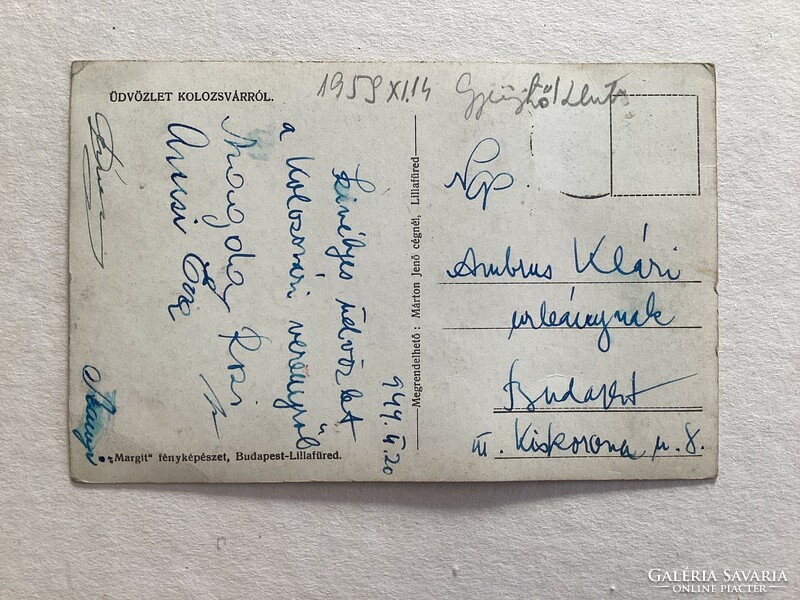 ÜDVÖZLET KOLOZSVÁRRÓL.
1959 XI.14
944. V. 20
Szívélyes üdvözlet
a kolozsvári versenyről
Magda Rozi
Ancsi
"Margit" fényképészet, Budapest-Lillafüred.
Megrendelhető: Márton Jenő cégnél, Lillafüred
Ng
Ambrus Klári
urleánynak
Budapest
III. Kiskorona u. 8.
GALÉRIA SAVARIA
ONLINE PIACTÉR